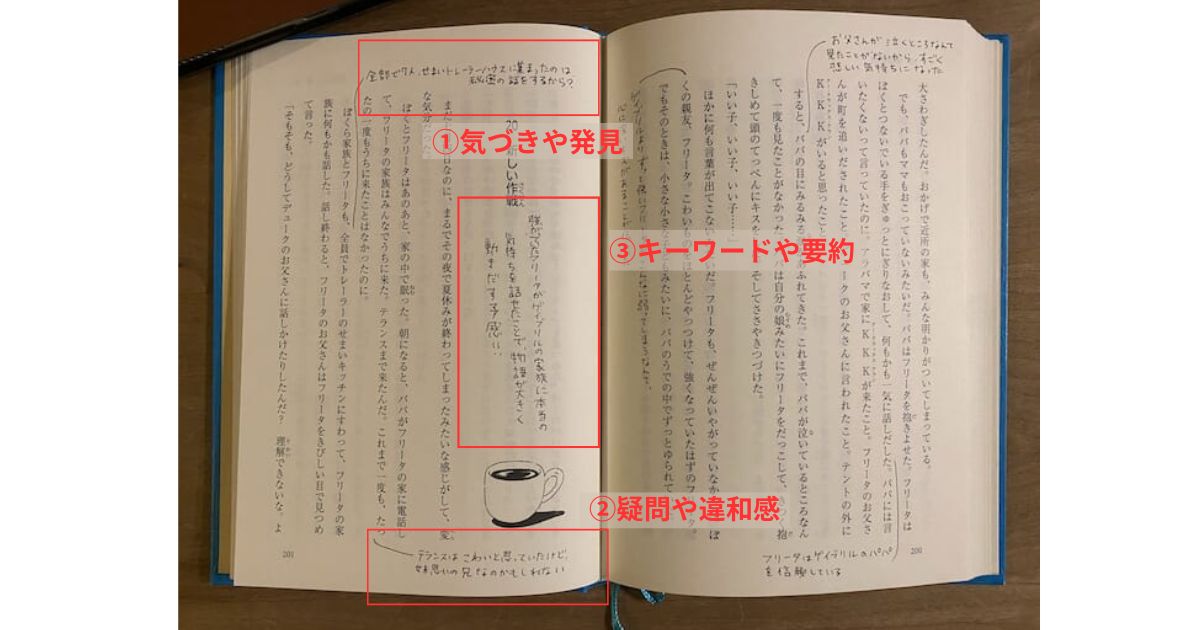 お父さんが泣くところなんて
見たことがないから、すごく
悲しい気持ちになった
大さわぎしたんだ。おかげで近所の家も、みんな明かりがついてしまっている。
でも、パパもママもおこっていないみたいだ。パパはフリータを抱きよせた。フリータは
ぼくとつないでいる手をぎゅっとにぎりなおして、何もかも一気に話しだした。パパには言
いたくないって言っていたのに。アラバマで家にKKKが来たこと。フリータのお父さ
んが町を追いだされたこと
ークのお父さんに言われたこと。テントの外に
KKKがいると思ったこと
すると、パパの目にみるみる
あふれてきた。これまで、パパが泣いているところなん
て、一度も見たことがなかった
パは自分の娘みたいにフリータをだっこして、
く抱
きしめて頭のてっぺんにキスを
そしてささやきつづけた。
「いい子、いい子、いい子……」
ほかに何も言葉が出てこない
いだ。フリータも、ぜんぜんいやがっていなか
ぼ
くの親友、フリータ。こわいものをほとんどやっつけて、強くなっていたはずのフ
でもそのときは、小さな小さな子どもみたいに、パパのうでの中でずっとゆられて
フリータはゲイブリルのパパ
を信頼している
200
③キーワードや要約
②疑問や違和感
①気づきや発見
全部で7人、せまいトレーラーハウスに集まったのは
秘密の話をするから？
20
新しい作戦
嫌がってたフリータがゲイブリルの家族に本当の
気持ちを話せたことで、物語が大きく
動きだす予感…
まだ
日なのに、まるでその夜で夏休みが終わってしまったみたいな感じがして、変
な気分だ
ぼくとフリータはあのあと、家の中で眠った。朝になると、パパがフリータの家に電話し
て、フリータの家族はみんなでうちに来た。テランスまで来たんだ。これまで一度も、たっ
たの一度もうちに来たことはなかったのに。
ぼくら家族とフリータも、全員でトレーラーのせまいキッチンにすわって、フリータの家
族に何もかも話した。話し終わると、フリータのお父さんはフリータをきびしい目で見つめ
て言った。
「そもそも、どうしてデュークのお父さんに話しかけたりしたんだ？　理解できないな。よ
テランスはこわいと思っていたけど、
妹思いの兄なのかもしれない
201